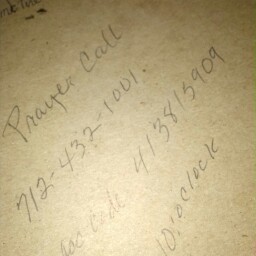 Prayer Call
712-432-1001.
code 413815909
10:oclock